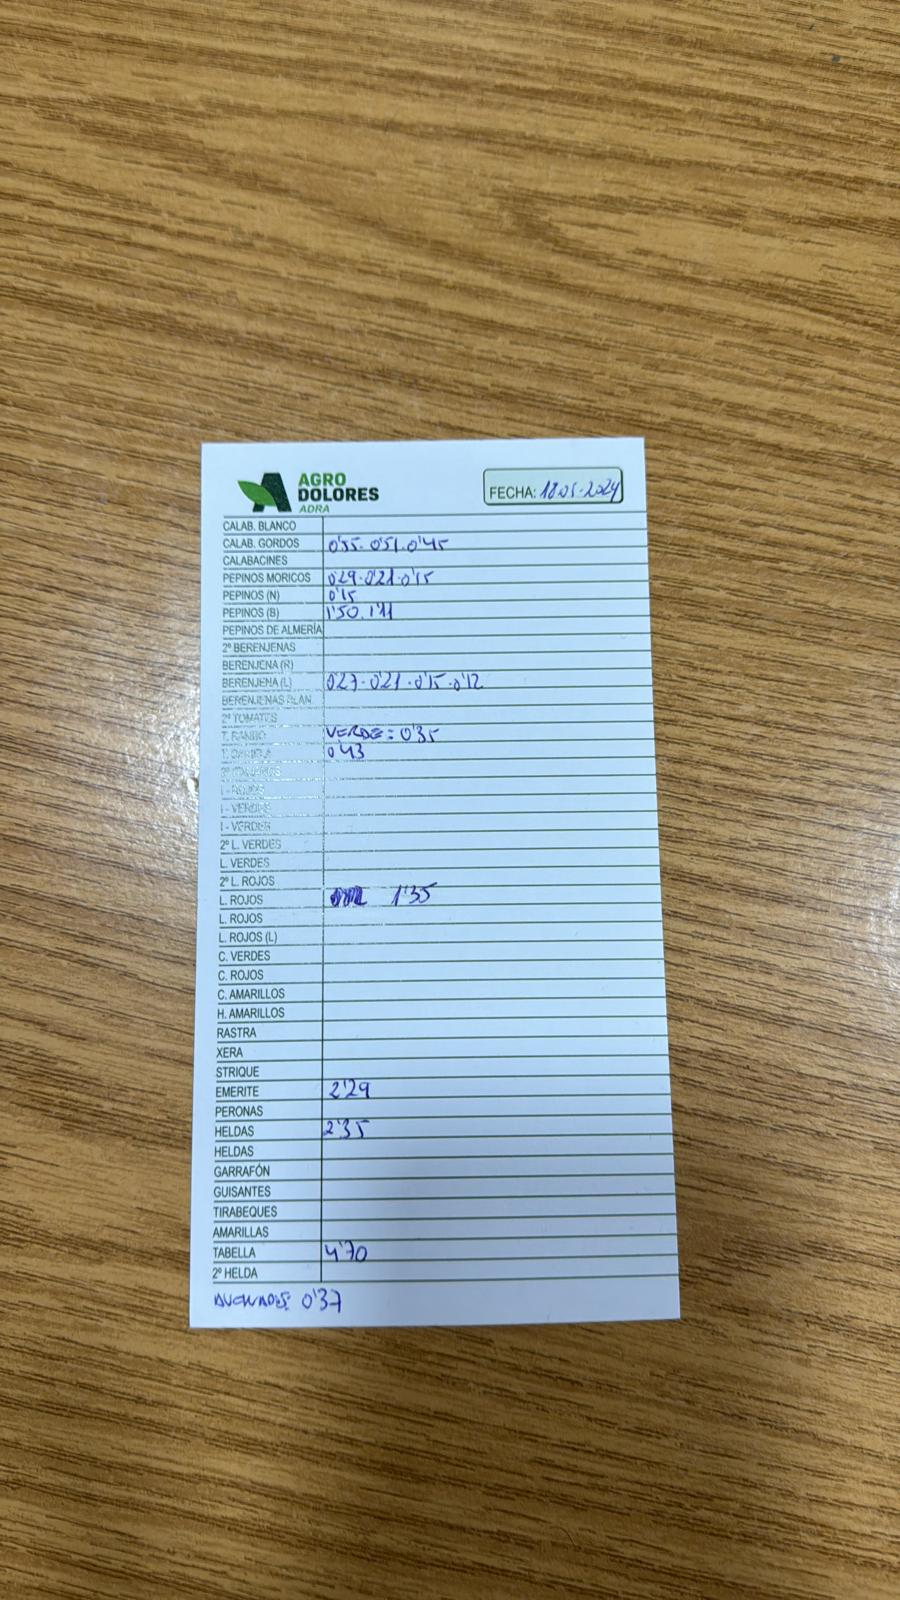 AGRO
DOLORES
ADRA
FECHA: 18·05·2024
CALAB. BLANCO
CALAB. GORDOS 0'55·0'51·0'45
CALABACINES
PEPINOS MORICOS 0'29·0'21·0'15
PEPINOS (N) 0'15
PEPINOS (B) 1'50·1'11
PEPINOS DE ALMERÍA
2ª BERENJENAS
BERENJENA (R)
BERENJENA (L) 0'27·0'21·0'15·0'12
BERENJENAS BLAN.
2ª TOMATES
VERDE: 0'35
0'43
I - ROJOS
I - VERDES
I - VERDES
2º L. VERDES
L. VERDES
2º L. ROJOS
L. ROJOS 1'35
L. ROJOS
L. ROJOS (L)
C. VERDES
C. ROJOS
C. AMARILLOS
H. AMARILLOS
RASTRA
XERA
STRIQUE
EMERITE 2'29
PERONAS
HELDAS 2'35
HELDAS
GARRAFÓN
GUISANTES
TIRABEQUES
AMARILLAS
TABELLA 4'70
2ª HELDA
0'37